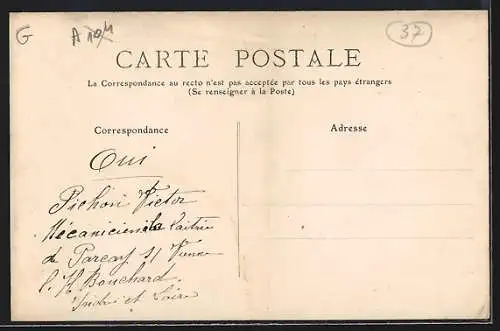 G
37
CARTE POSTALE
La Correspondance au recto n'est pas acceptée par tous les pays étrangers
(Se renseigner à la Poste)
Correspondance
Adresse
Oui
Pichon Victor
Mécanicien
de Parçay s/ Vienne
l'H Bouchard
Indre et Loire